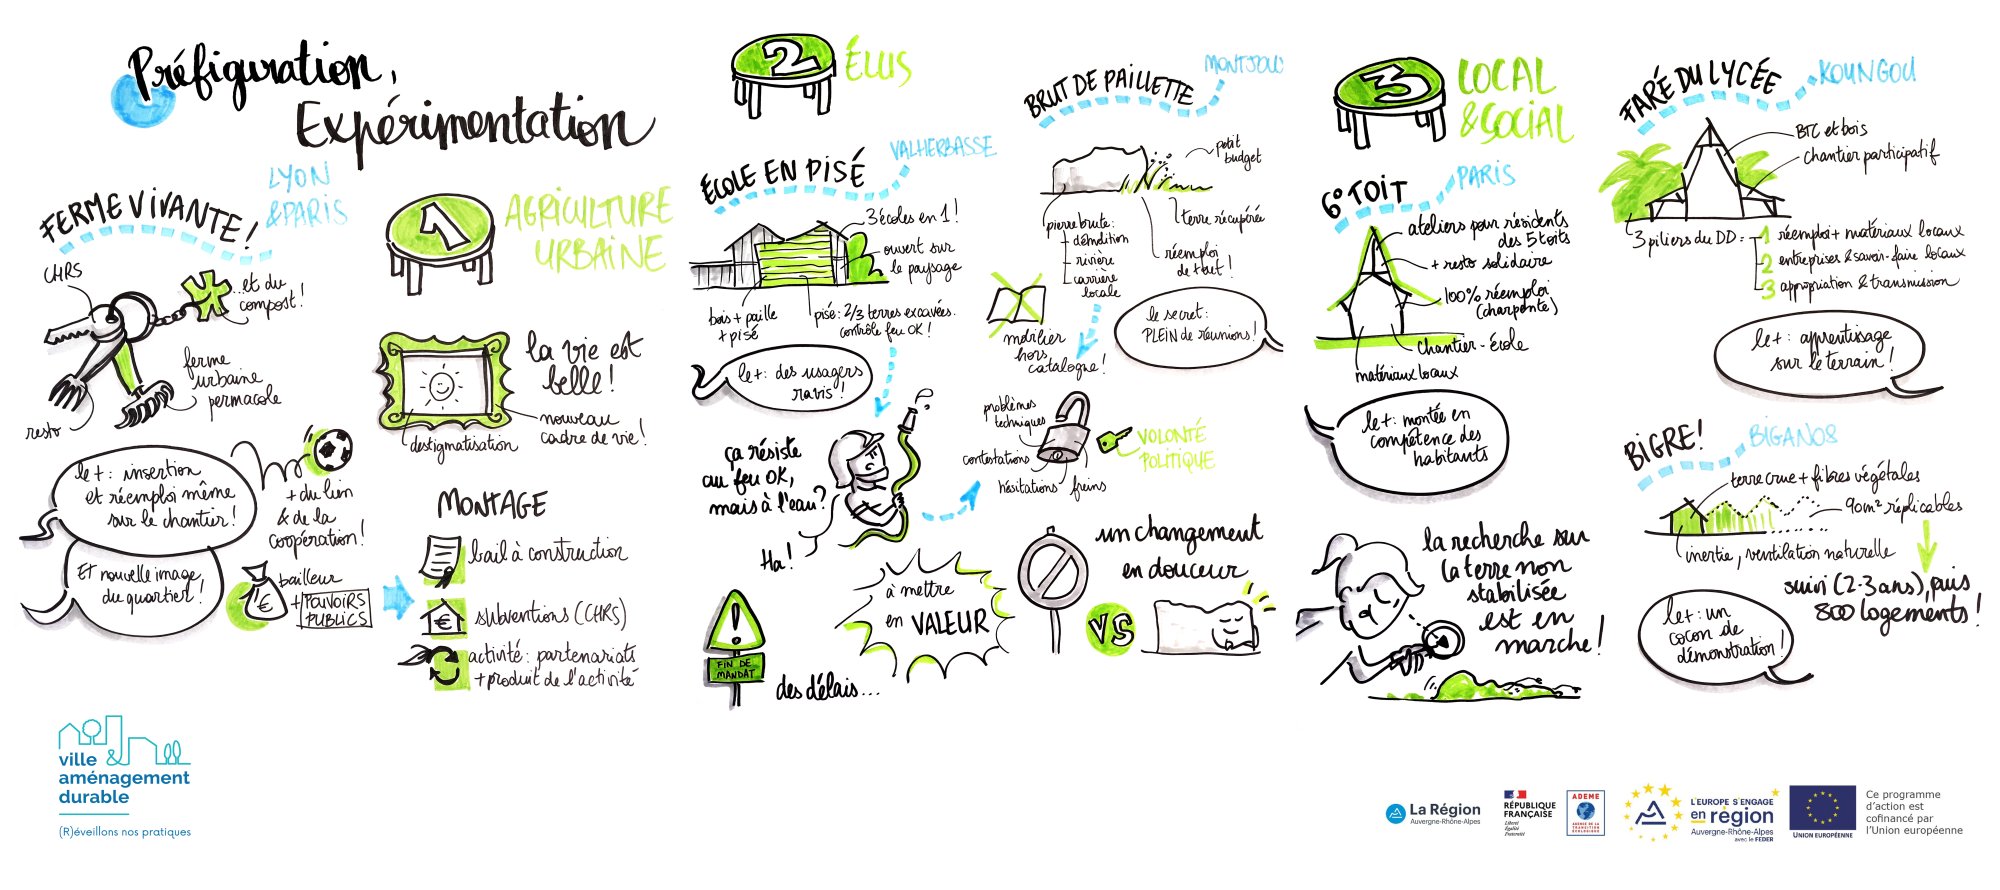 Préfiguration,
Expérimentation
FERME VIVANTE !
LYON
& PARIS
CHRS
...et du
compost !
ferme
urbaine
permacole
resto
le + : insertion
et réemploi même
sur le chantier !
ET nouvelle image
du quartier !
+ du lien
& de la
coopération !
bailleur
+ POUVOIRS
PUBLICS
1
AGRICULTURE
URBAINE
la vie est
belle !
nouveau
cadre de vie !
destigmatisation
MONTAGE
bail à construction
subventions (CHRS)
activité : partenariats
+ produit de l'activité
2
ÉLUS
ÉCOLE EN PISÉ
VALHERBASSE
3 écoles en 1 !
ouvert sur
le paysage
bois + paille
+ pisé
pisé : 2/3 terres excavées.
contrôle feu OK !
le + : des usagers
ravis !
ça résiste
au feu OK,
mais à l'eau ?
Ha !
FIN DE
MANDAT
des délais...
à mettre
en VALEUR
BRUT DE PAILLETTE
petit
budget
terre récupérée
pierre brute :
- démolition
- rivière
- carrière
locale
réemploi
de tout !
mobilier
hors
catalogue !
le secret :
PLEIN de réunions !
problèmes
techniques
contestations
hésitations
freins
VOLONTÉ
POLITIQUE
un changement
en douceur
VS
3
LOCAL
& SOCIAL
6° TOIT
PARIS
ateliers pour résidents
des 5 toits
+ resto solidaire
100% réemploi
(charpente)
chantier-école
matériaux locaux
le + : montée en
compétence des
habitants
la recherche sur
la terre non
stabilisée
est en
marche !
FARÉ DU LYCÉE
KOUNGOU
BTC et bois
chantier participatif
3 piliers du DD :
1 réemploi + matériaux locaux
2 entreprises & savoir-faire locaux
3 appropriation & transmission
le + : apprentissage
sur le terrain !
BIGRE !
BIGANOS
terre crue + fibres végétales
90m² réplicables
inertie, ventilation naturelle
suivi (2-3 ans), puis
800 logements !
le + : un
cocon de
démonstration !
ville
&
aménagement
durable
(R)éveillons nos pratiques
La Région
Auvergne-Rhône-Alpes
RÉPUBLIQUE
FRANÇAISE
Liberté
Égalité
Fraternité
ADEME
AGENCE DE LA
TRANSITION
ÉCOLOGIQUE
L'EUROPE S'ENGAGE
en région
Auvergne-Rhône-Alpes
avec le FEDER
UNION EUROPÉENNE
Ce programme
d'action est
cofinancé par
l'Union européenne